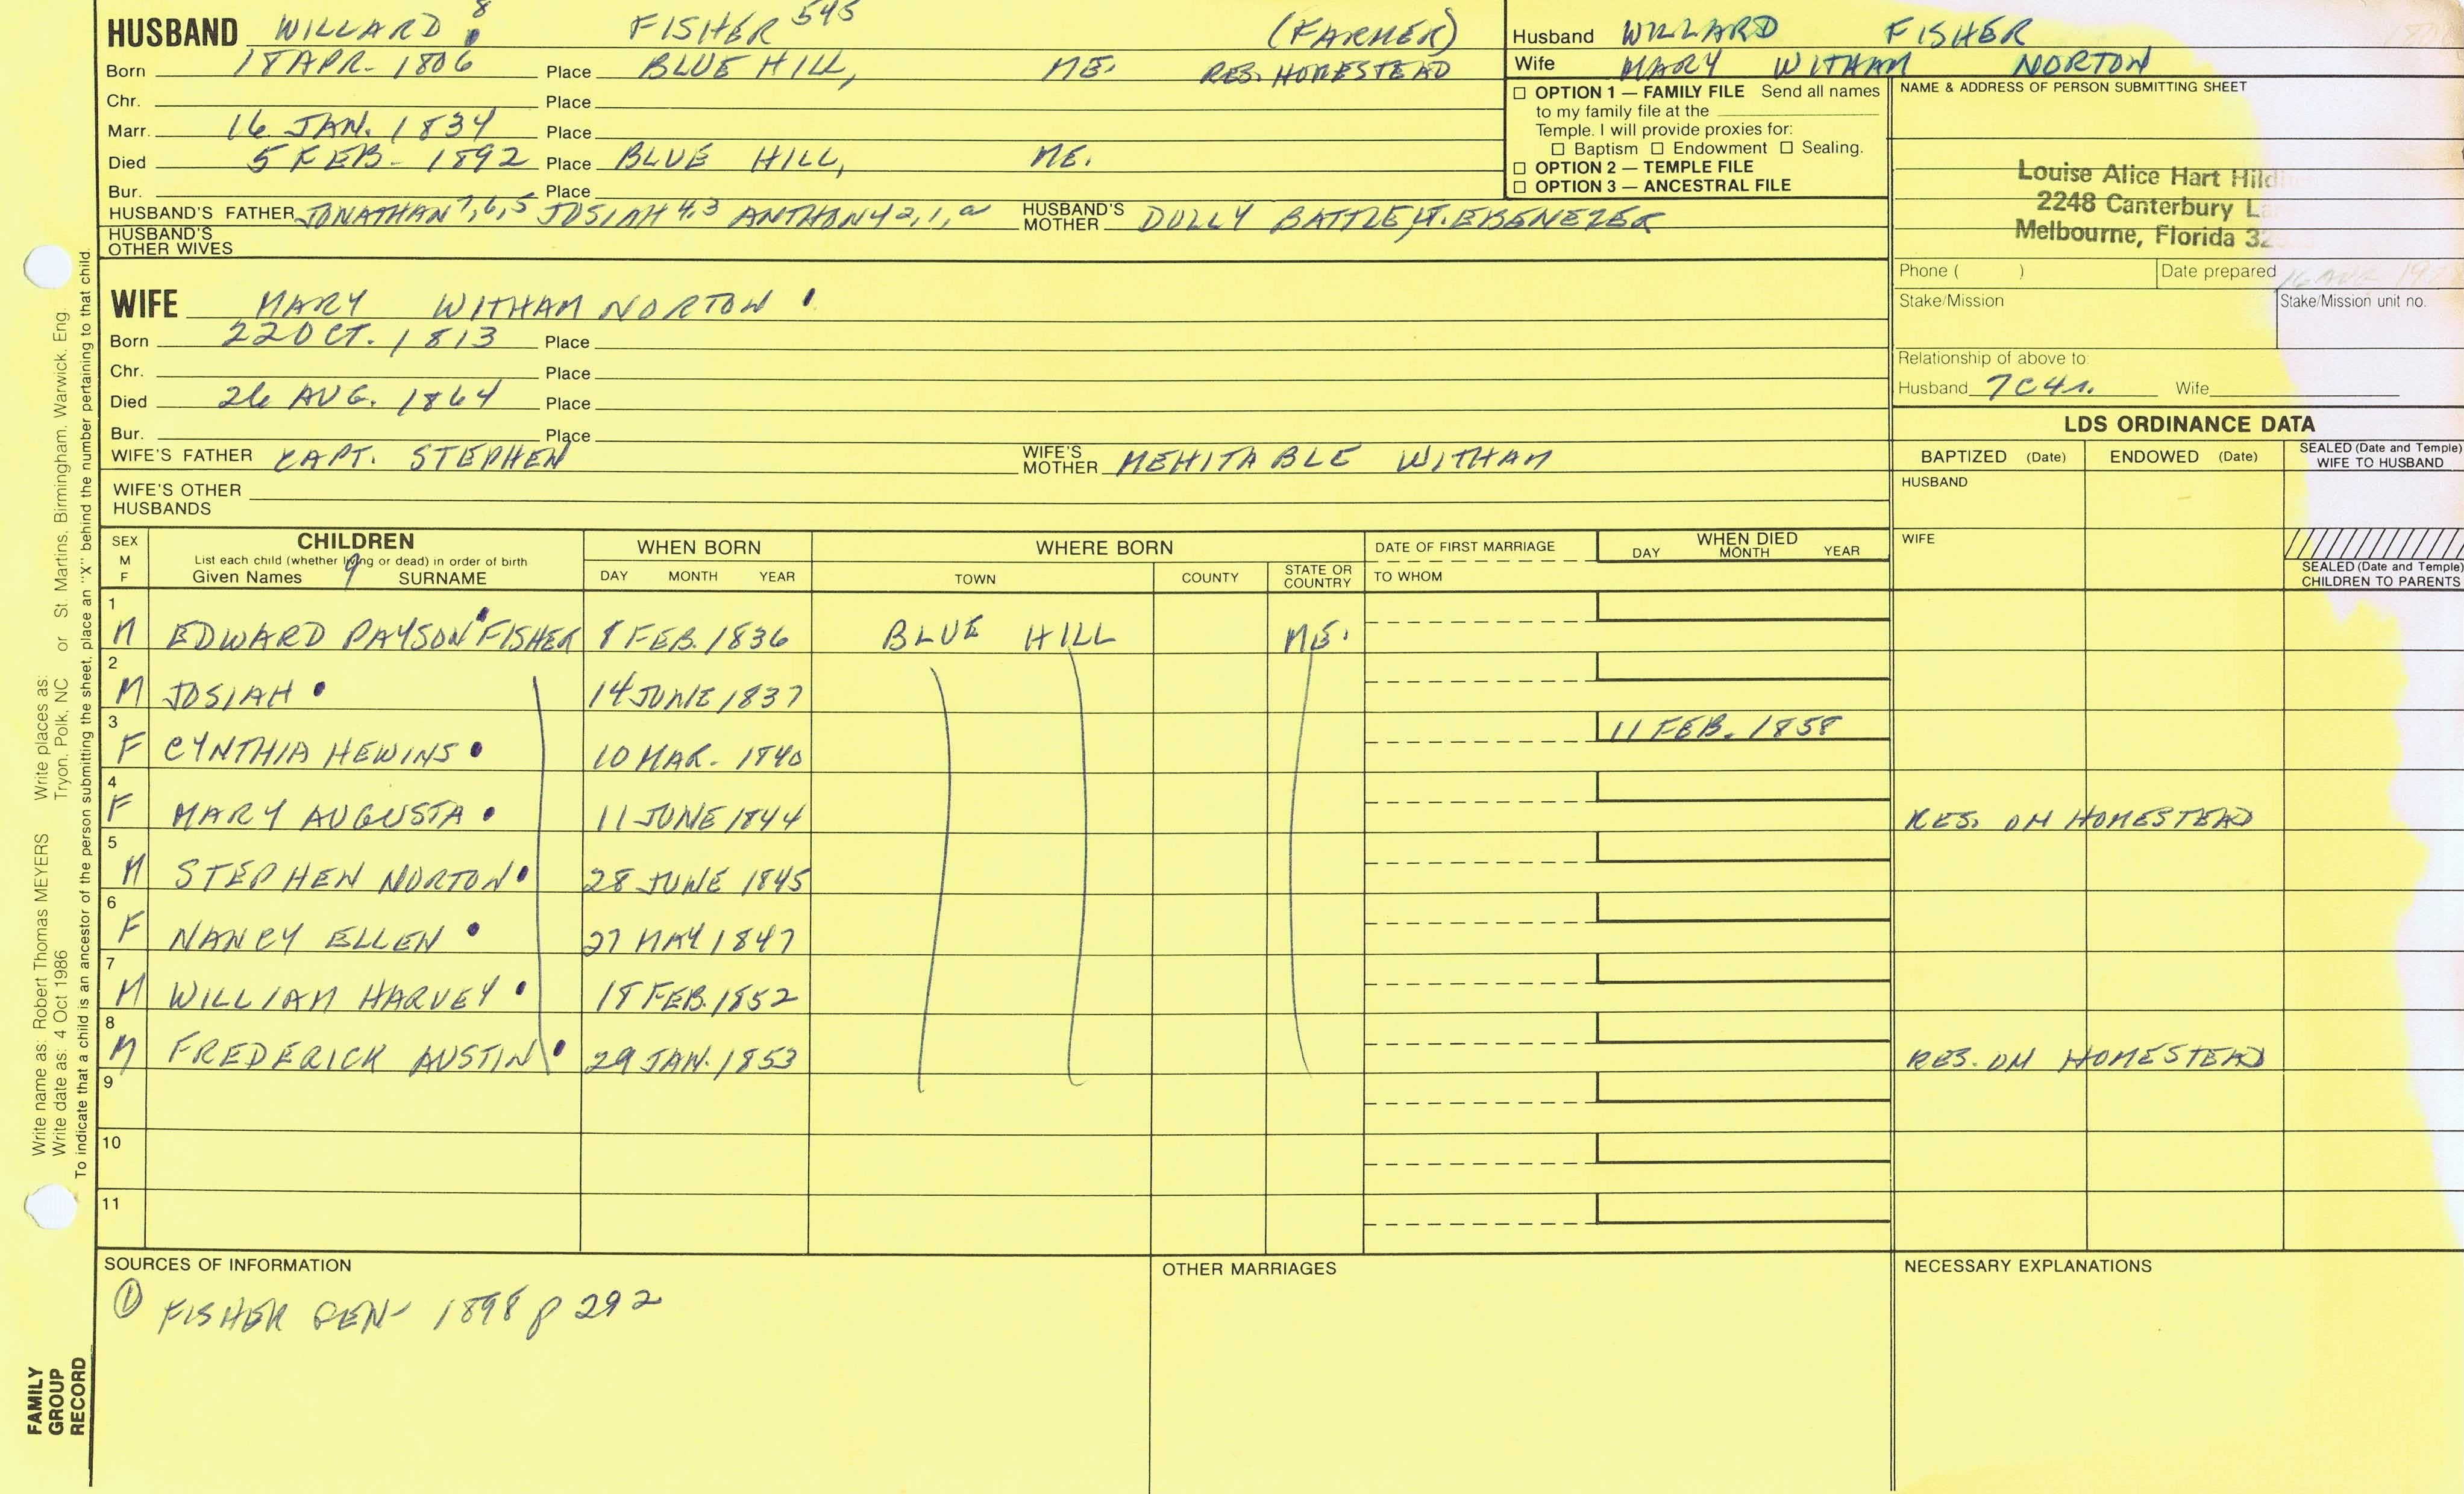 HUSBAND WILLARD 8 FISHER 545 (FARMER)
Born 18 APR. 1806 Place BLUE HILL, ME. RES. HOMESTEAD
Chr. Place
Marr. 16 JAN. 1834 Place
Died 5 FEB. 1892 Place BLUE HILL, ME.
Bur. Place
HUSBAND'S FATHER JONATHAN 7,6,5 JOSIAH 4,3 ANTHONY 2,1,a HUSBAND'S MOTHER DOLLY BATTLE, EBENEZER
HUSBAND'S OTHER WIVES
WIFE MARY WITHAM NORTON
Born 22 OCT. 1813 Place
Chr. Place
Died 26 AUG. 1864 Place
Bur. Place
WIFE'S FATHER CAPT. STEPHEN WIFE'S MOTHER MEHITABLE WITHAM
WIFE'S OTHER HUSBANDS
Husband WILLARD FISHER
Wife MARY WITHAM NORTON
☐ OPTION 1 — FAMILY FILE Send all names
to my family file at the
Temple. I will provide proxies for:
☐ Baptism ☐ Endowment ☐ Sealing.
☐ OPTION 2 — TEMPLE FILE
☐ OPTION 3 — ANCESTRAL FILE
NAME & ADDRESS OF PERSON SUBMITTING SHEET
Louise Alice Hart
2248 Canterbury
Melbourne, Florida
Phone ( ) Date prepared 16 AUG
Stake/Mission Stake/Mission unit no.
Relationship of above to:
Husband 7C4r. Wife
LDS ORDINANCE DATA
BAPTIZED (Date) ENDOWED (Date) SEALED (Date and Temple) WIFE TO HUSBAND
HUSBAND
WIFE
SEALED (Date and Temple) CHILDREN TO PARENTS
SEX M F
CHILDREN
List each child (whether living or dead) in order of birth
Given Names 9 SURNAME
WHEN BORN
DAY MONTH YEAR
WHERE BORN
TOWN COUNTY STATE OR COUNTRY
DATE OF FIRST MARRIAGE
TO WHOM
WHEN DIED
DAY MONTH YEAR
1 M EDWARD PAYSON FISHER 8 FEB. 1836 BLUE HILL ME.
2 M JOSIAH 14 JUNE 1837
3 F CYNTHIA HEWINS 10 MAR. 1840 11 FEB. 1858
4 F MARY AUGUSTA 11 JUNE 1844 RES. ON HOMESTEAD
5 M STEPHEN NORTON 28 JUNE 1845
6 F NANCY ELLEN 27 MAY 1847
7 M WILLIAM HARVEY 18 FEB. 1852
8 M FREDERICK AUSTIN 29 JAN. 1853 RES. ON HOMESTEAD
9
10
11
SOURCES OF INFORMATION
① FISHER GEN- 1898 p 292
OTHER MARRIAGES
NECESSARY EXPLANATIONS
Write name as: Robert Thomas MEYERS Write places as: St. Martins, Birmingham, Warwick, Eng.
Write date as: 4 Oct 1986 Tryon, Polk, NC or
To indicate that a child is an ancestor of the person submitting the sheet, place an "X" behind the number pertaining to that child.
FAMILY
GROUP
RECORD